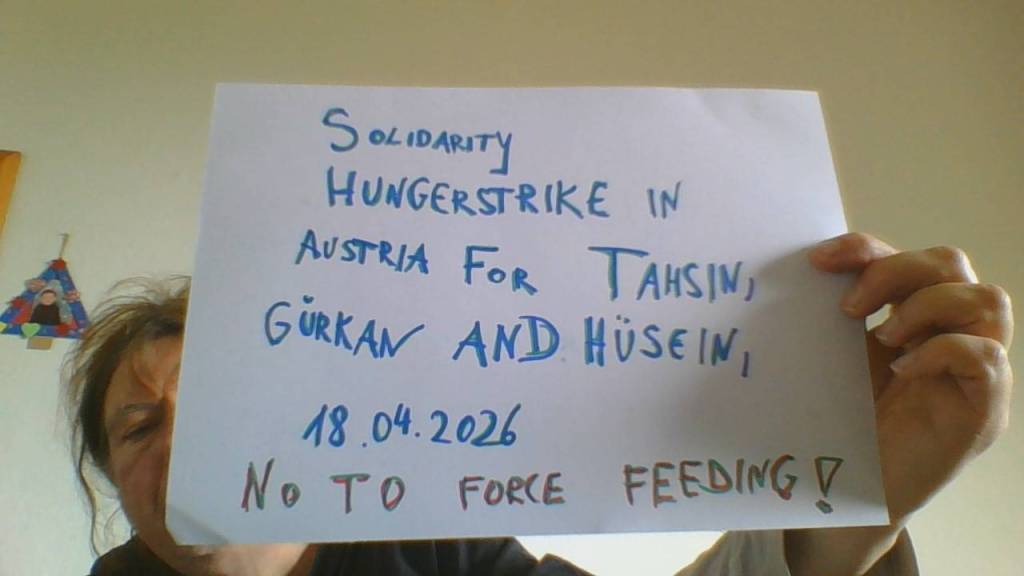 SOLIDARITY
HUNGERSTRIKE IN
AUSTRIA FOR TAHSIN,
GÜRKAN AND HÜSEIN,
18.04.2026
NO TO FORCE FEEDING!